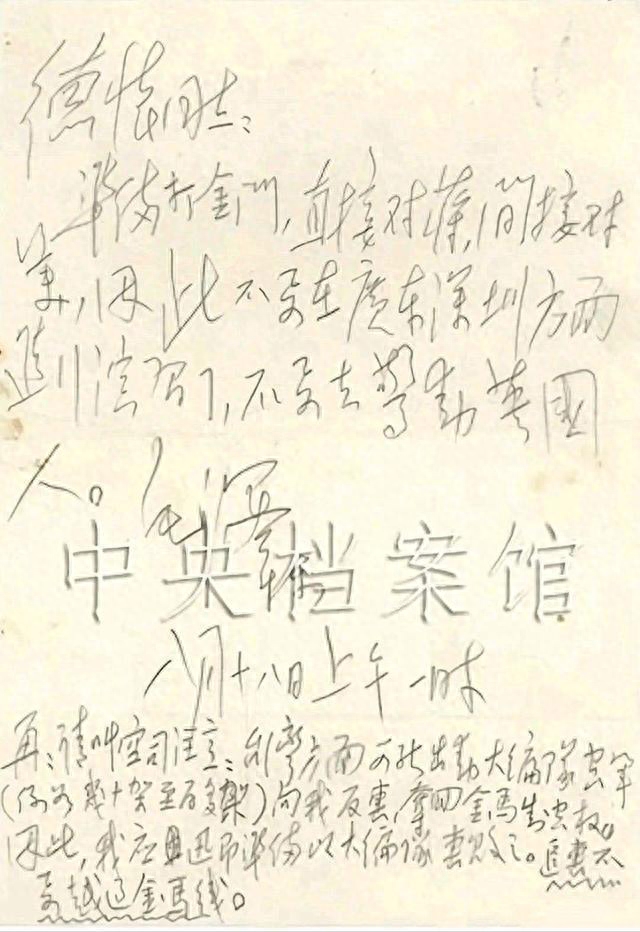 德怀同志:
準备打金门,直接对蒋,间接对
美,因此不要在廣东深圳方面
進行演習,不要去警动英國
人。毛澤東
中央档案馆
八月十八日上午一时
再:请叫空司注意:台灣方面可能出动大编隊空军
(例如幾十架至百多架)向我反击,夺回金馬制空权。
因此,我应迅即準备以大编隊击败之。追击不
要越过金馬线。